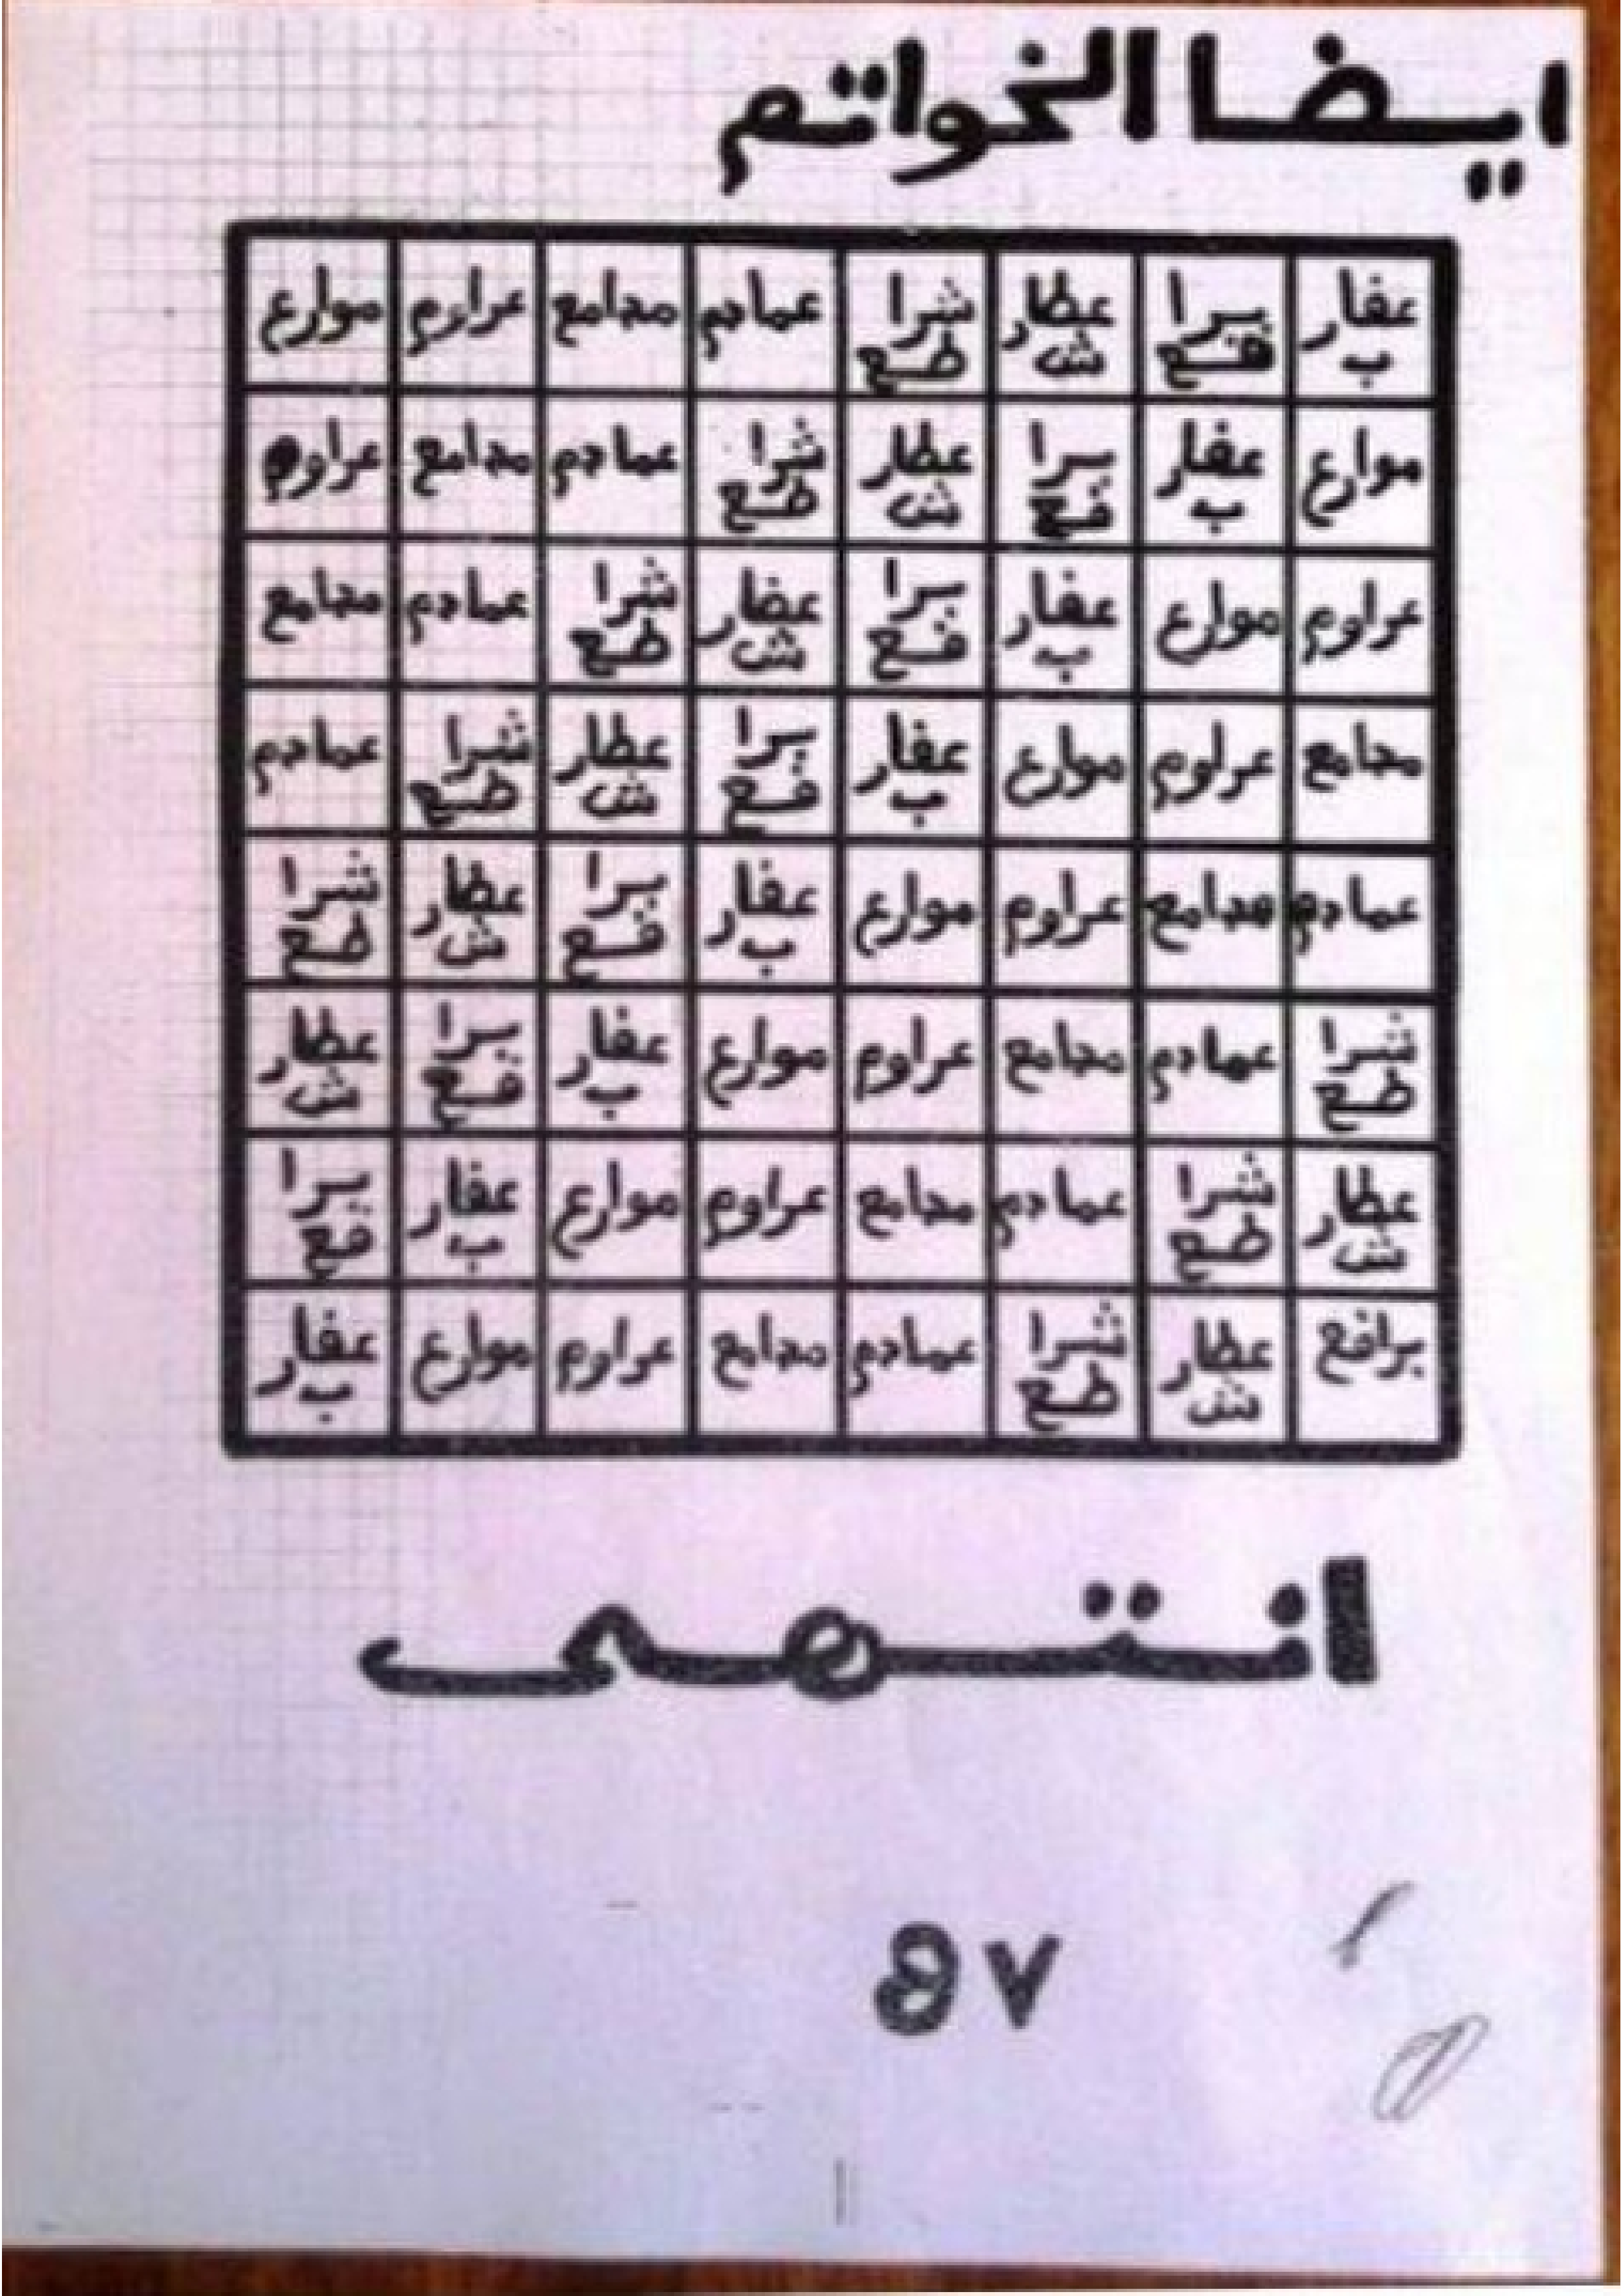 ايضا الخواتم
عفارب برافع عطارش شراطع عمادم مجامع عراوم موارع
موارع عفارب برافع عطارش شراطع عمادم مجامع عراوم
عراوم موارع عفارب برافع عطارش شراطع عمادم مجامع
مجامع عراوم موارع عفارب برافع عطارش شراطع عمادم
عمادم مجامع عراوم موارع عفارب برافع عطارش شراطع
شراطع عمادم مجامع عراوم موارع عفارب برافع عطارش
عطارش شراطع عمادم مجامع عراوم موارع عفارب برافع
برافع عطارش شراطع عمادم مجامع عراوم موارع عفارب
انتهى